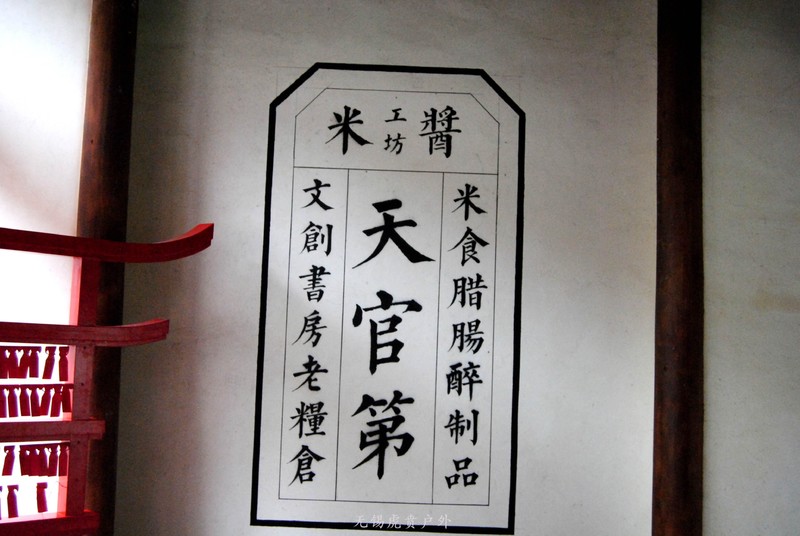 醬工坊米
米食腊腸醉制品
天官第
文創書房老糧倉
无锡虎贲户外